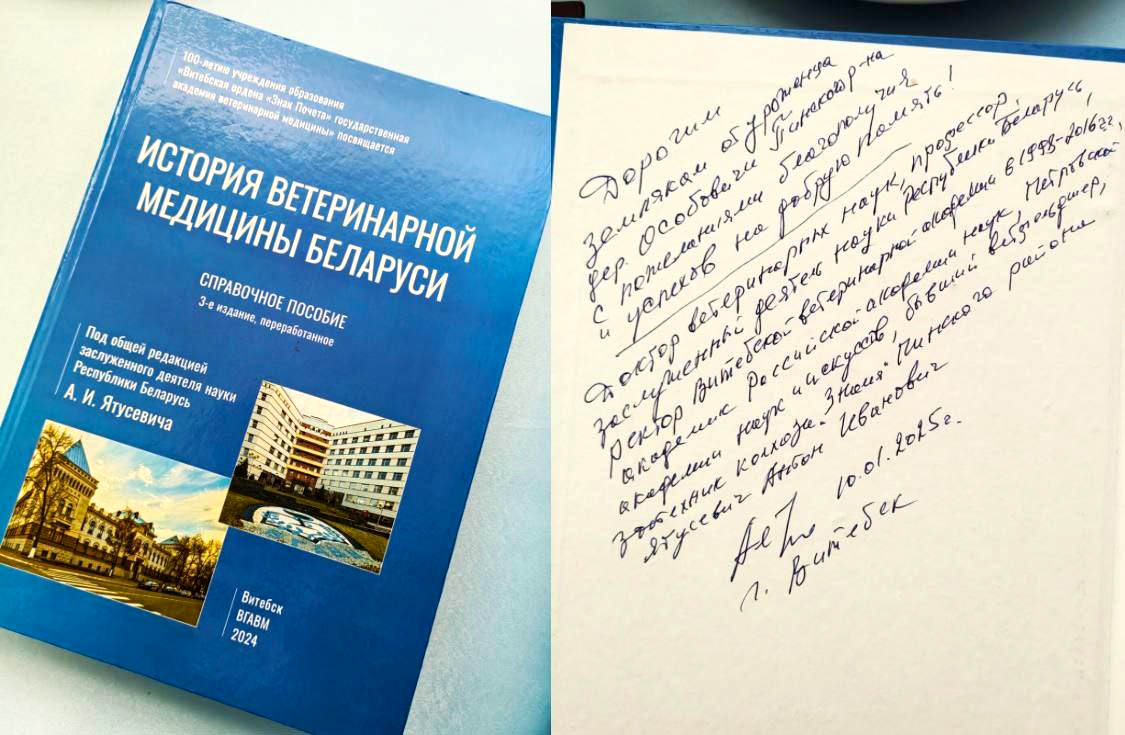 100-летию учреждения образования
«Витебская ордена «Знак Почета» государственная
академия ветеринарной медицины» посвящается
ИСТОРИЯ ВЕТЕРИНАРНОЙ
МЕДИЦИНЫ БЕЛАРУСИ
СПРАВОЧНОЕ ПОСОБИЕ
3-е издание, переработанное
Под общей редакцией
заслуженного деятеля науки
Республики Беларусь
А. И. Ятусевича
Витебск
ВГАВМ
2024
Дорогим
землякам от уроженца
дер. Особовичи Пинского р-на
с пожеланиями благополучия
и успехов на добрую память!
Доктор ветеринарных наук, профессор,
заслуженный деятель науки Республики Беларусь,
ректор Витебской ветеринарной академии в 1998-2016 гг,
академик Российской академии наук, Петровской
академии наук и искусств, бывший
зоотехник колхоза "Знамя" Пинского района
Ятусевич Антон Иванович
10.01.2025г.
г. Витебск